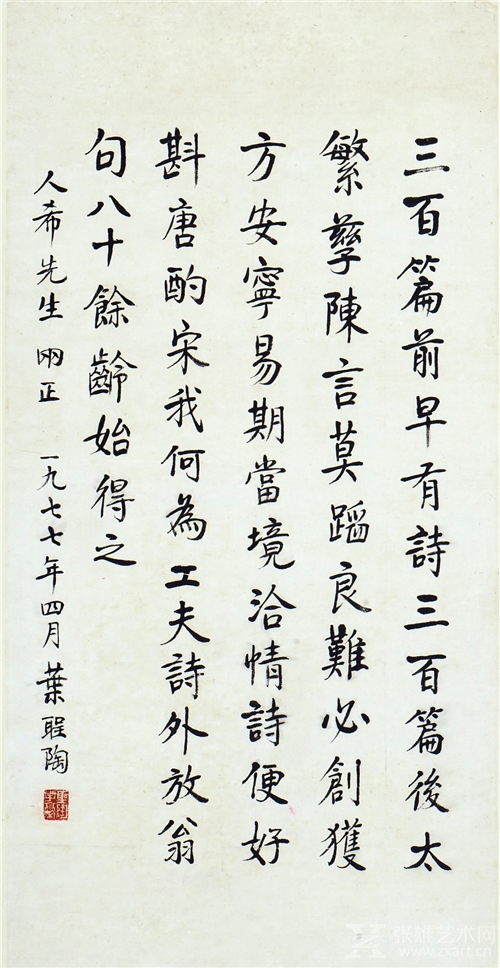 三百篇前早有詩三百篇後太
繁孳陳言莫蹈良難必創獲
方安寧易期當境洽情詩便好
斟唐酌宋我何為工夫詩外放翁
句八十餘齡始得之
人希先生 兩正
一九七七年四月 葉聖陶
张雄艺术网
www.zsart.cn